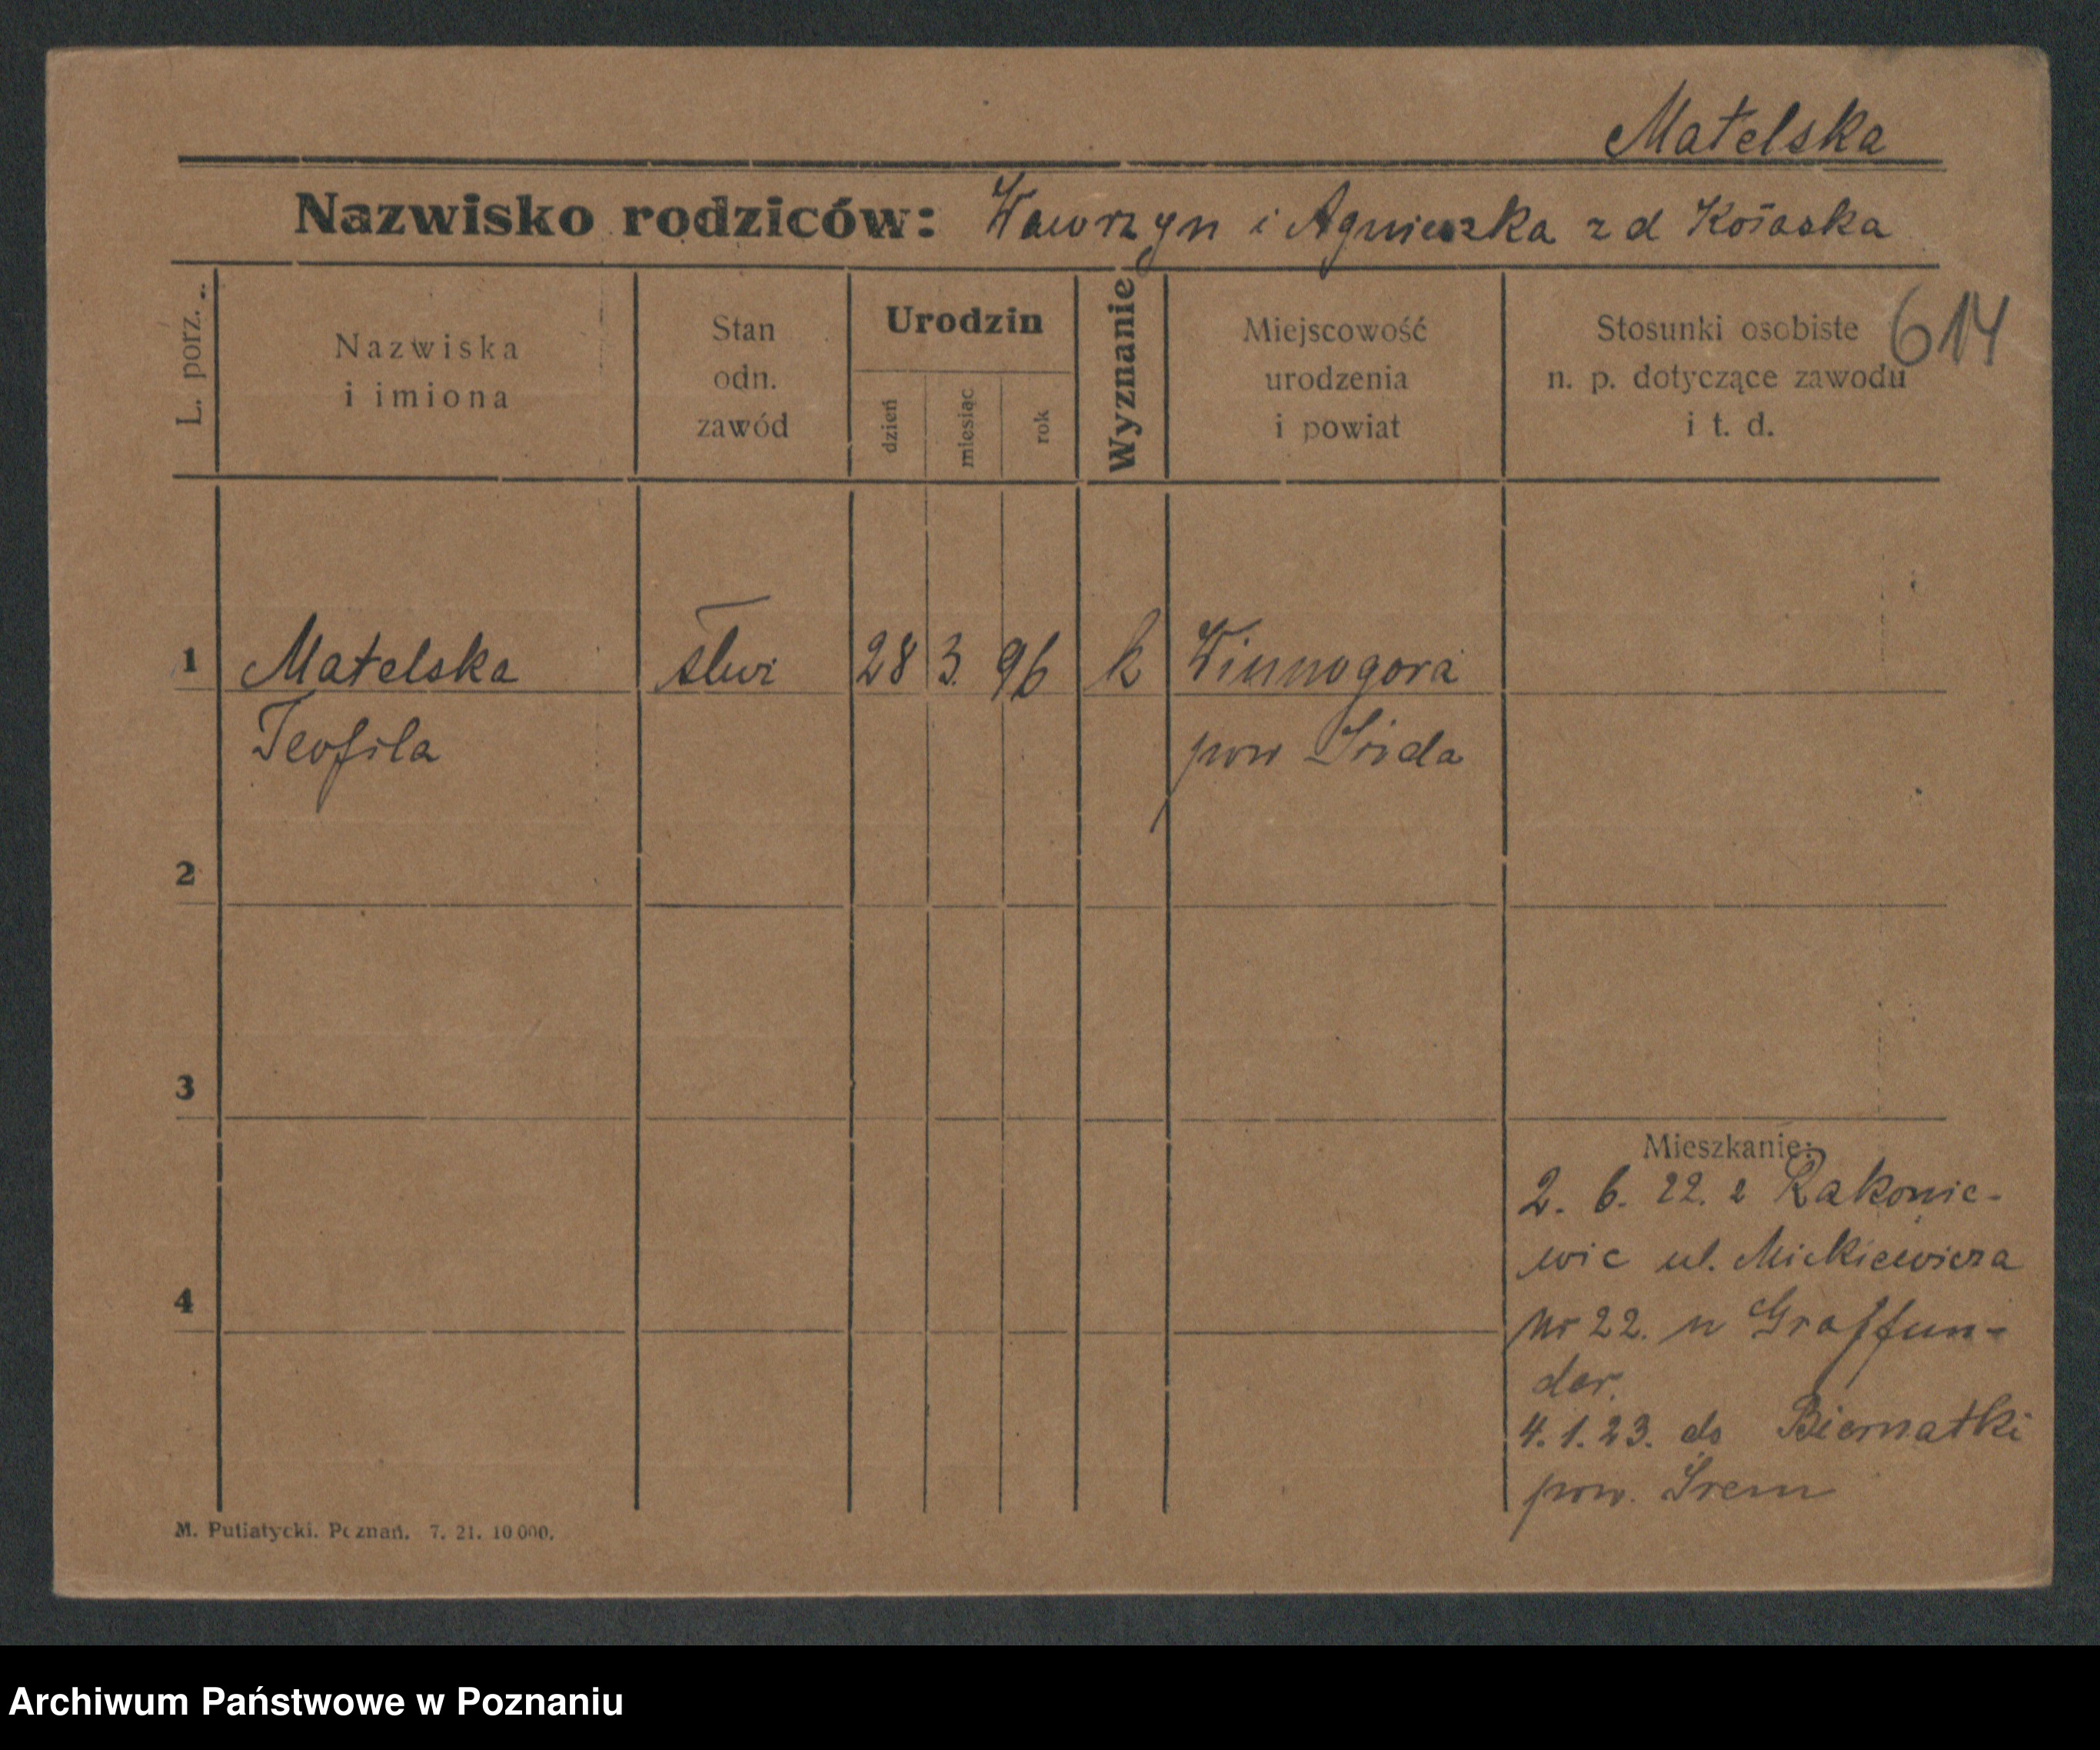 Matelska
Nazwisko rodziców: Wawrzyn i Agnieszka z d
614
L. porz.
Nazwiska
i imiona
Stan
odn.
zawód
Urodzin
dzień
miesiąc
rok
Wyznanie
Miejscowość
urodzenia
i powiat
Stosunki osobiste
n. p. dotyczące zawodu
i t. d.
1 Matelska 28 3. 96 k Winnogora
Teofila pow
2
3
4
Mieszkanie:
2. 6. 22. z Rakonie-
wic ul. Mickiewicza
nr 22. u Graffun-
der.
4. 1. 23. do Biernatki
pow. Śrem
M. Putiatycki. Poznań. 7. 21. 10 000.
Archiwum Państwowe w Poznaniu